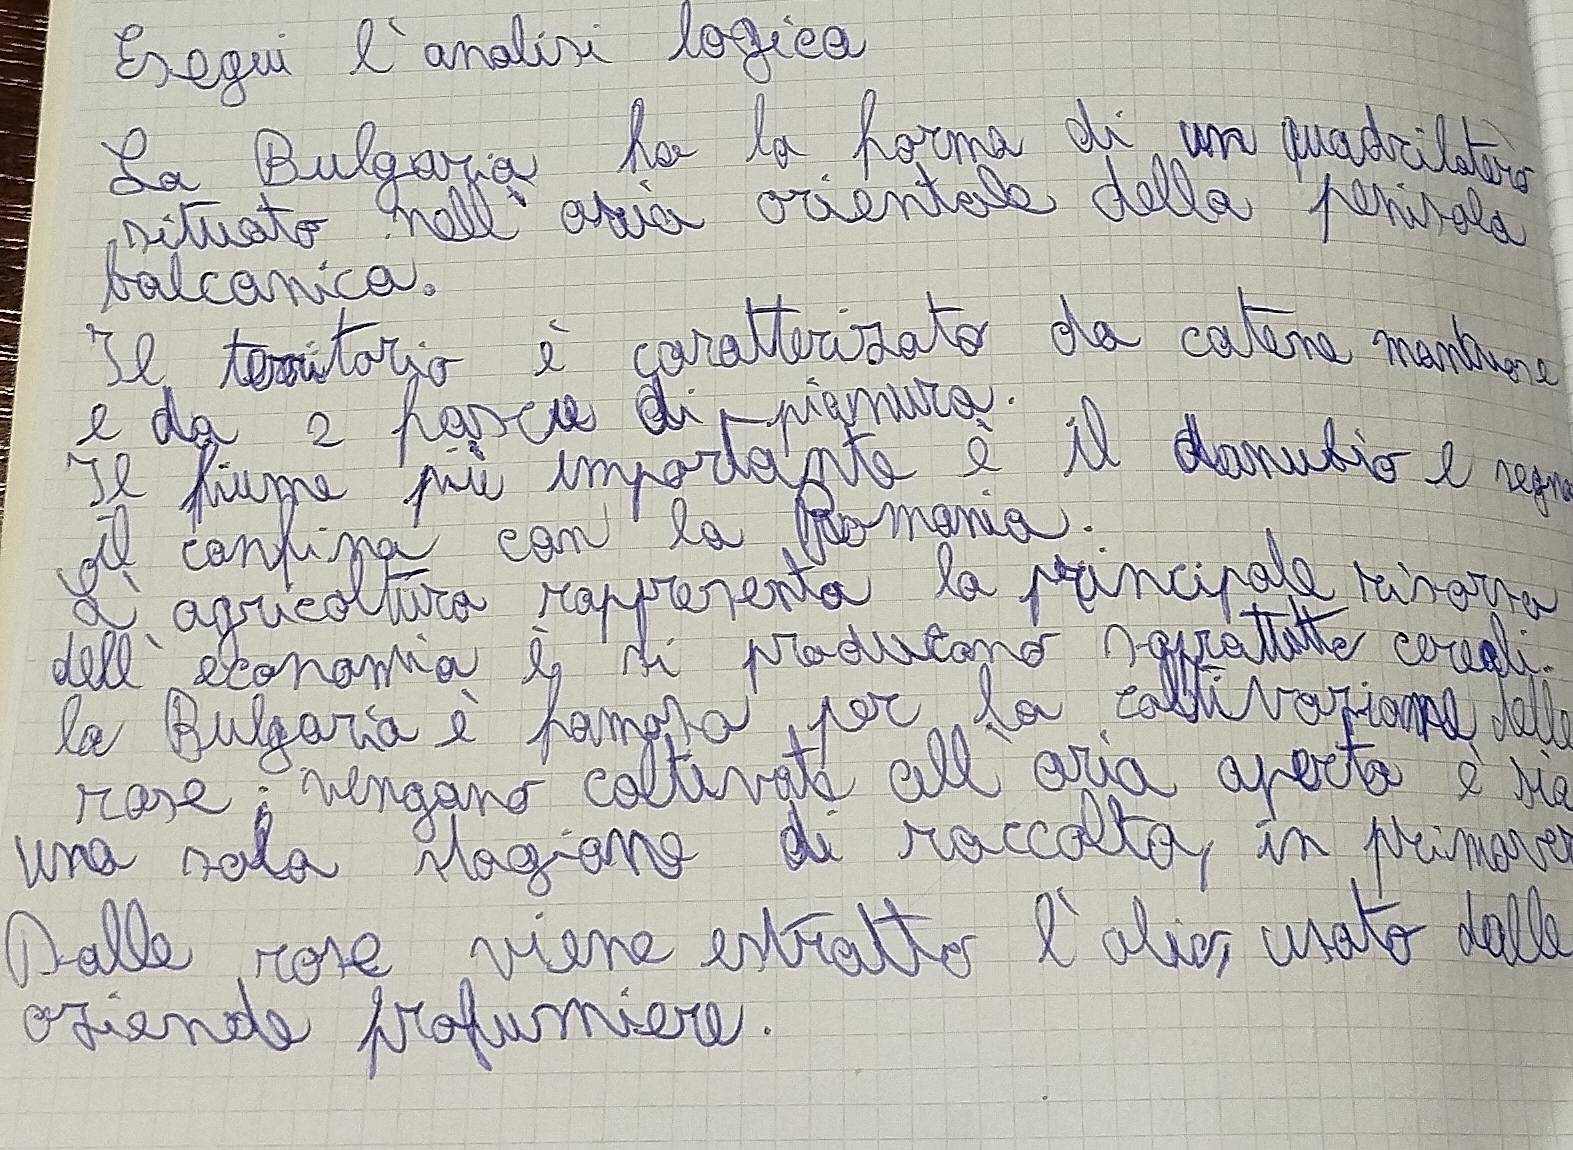 Esegui l'analisi logica
La Bulgaria ha la forma di un quadrilatero
situato nell'asia orientale della penisola
balcanica.
Il territorio è caratterizato da catene montuose
e da 2 fasce di pianura.
Il fiume più importante è il danubio e segna
il confine con la Romania.
L'agricoltura rappresenta la principale risorsa
dell'economia e si producono soprattutto cereali.
la Bulgaria è famosa per la coltivazione delle
rose; vengono coltivate all'aria aperta e
una sola stagione di raccolta, in primaver
Dalle rose viene estratto l'olio, usato dalle
aziende profumiere.